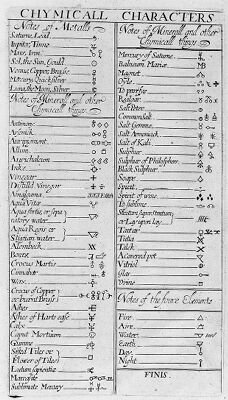 CHYMICALL CHARACTERS
Notes of Metalls
Saturne, Lead
Jupiter, Tinne
Mars, Iron
Sol, the Sun, Gould
Venus, Copper, Brasse
Mercury, Quicksilver
Luna, the Moon, Silver
Notes of Minerall and other Chymicall things
Antimony
Arsenick
Auripigment
Allum
Aurichalcum
Inke
Vinegar
Distilld Vinegar
Amalgama
Aqua Vitæ
Aqua fortis, or sepa
ratory water
Aqua Regis or
Stigian water
Alembeck
Borax
Crocus Martis
Cinnabar
Wax
Crocus of Copper
or burnt Brass
Ashes
Ashes of Harts ease
Calx
Caput Mortuum
Gumme
Sifted Tiles or
Flower of Tiles
Lutum sapientiæ
Marcasite
Sublimate Mercury
Notes of Minerall and other
Chymicall things
Mercury of Saturne
Balneum Mariæ
Magnet
Oyle
To purifie
Realgar
Salt Peter
Common Salt
Salt Gemme
Salt Armoniack
Salt of Kali
Sulphur
Sulphur of Philosophers
Black Sulphur
Soape
Spirit
Spirit of wine
To sublime
Stratum super stratum
or Lay upon lay
Tartar
Tutia
Talck
A covered pot
Vitriol
Glas
Urine
Notes of the foure Elements
Fire
Aire
Water
Earth
Day
Night
FINIS.